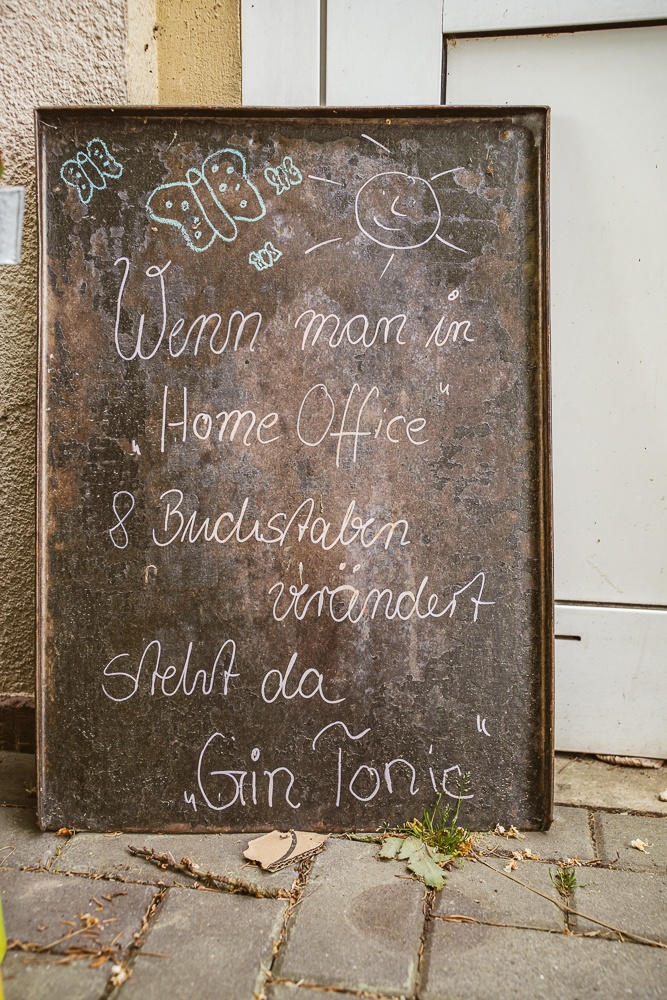 Wenn man in
„Home Office“
8 Buchstaben
verändert
steht da
„Gin Tonic“